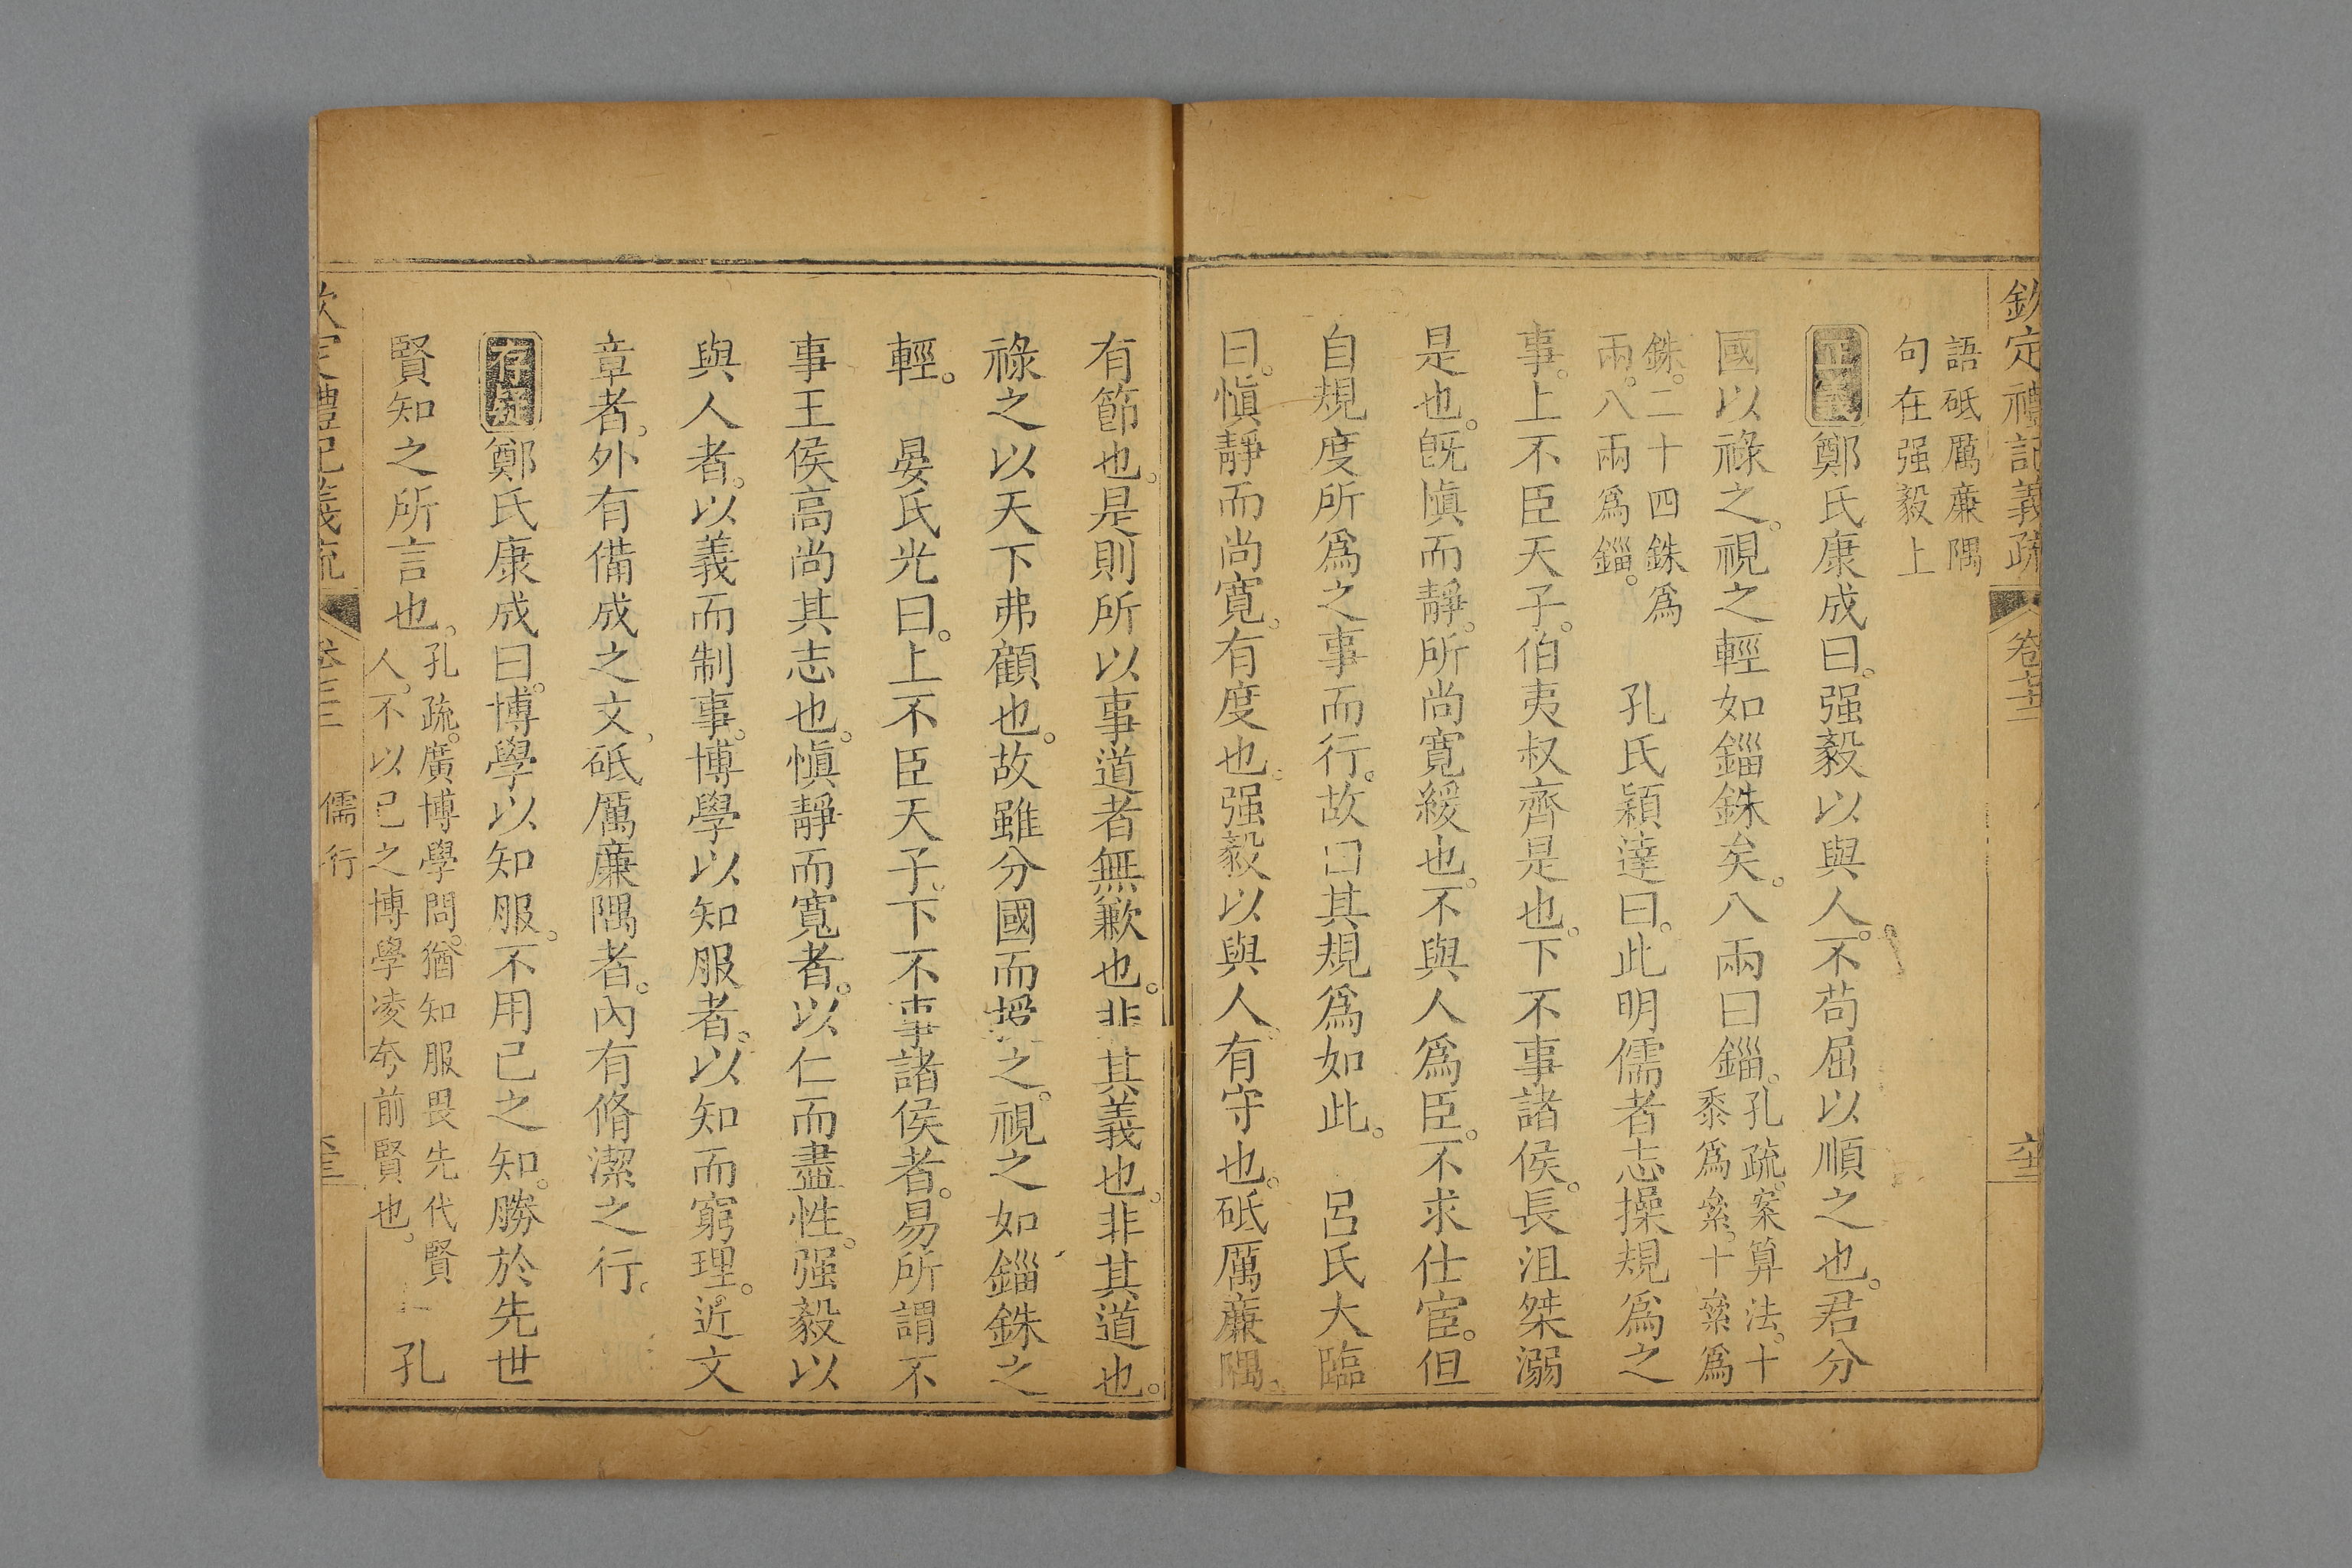 欽定禮記義疏
語砥厲廉隅
句在强毅上
正義鄭氏康成曰。强毅以與人。不苟屈以順之也。君分
國以祿之。視之輕如錙銖矣。八兩曰錙。孔疏。案算法。十
黍爲絫。十絫爲
銖。二十四銖爲
兩。八兩爲錙。
孔氏穎達曰。此明儒者志操規爲之
事。上不臣天子。伯夷叔齊是也。下不事諸侯。長沮桀溺
是也。旣愼而靜。所尚寬緩也。不與人爲臣。不求仕宦。但
自規度所爲之事而行。故曰其規爲如此。 呂氏大臨
曰。愼靜而尚寬。有度也。强毅以與人。有守也。砥厲廉隅。
有節也。是則所以事道者無歉也。非其義也。非其道也。
祿之以天下弗顧也。故雖分國而授之。視之如錙銖之
輕。 晏氏光曰。上不臣天子。下不事諸侯者。易所謂不
事王侯高尚其志也。愼靜而寬者。以仁而盡性。强毅以
與人者。以義而制事。博學以知服者。以知而窮理。近文
章者。外有備成之文。砥厲廉隅者。內有脩潔之行。
存疑鄭氏康成曰。博學以知服。不用己之知。勝於先世
賢知之所言也。孔疏。廣博學問。猶知服畏先代賢
人。不以己之博學凌夸前賢也。
孔
儒行